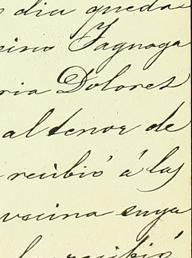 dia queda
Tagnaga
ria Dolores
al tenor de
recibió á las
cuya
recibió